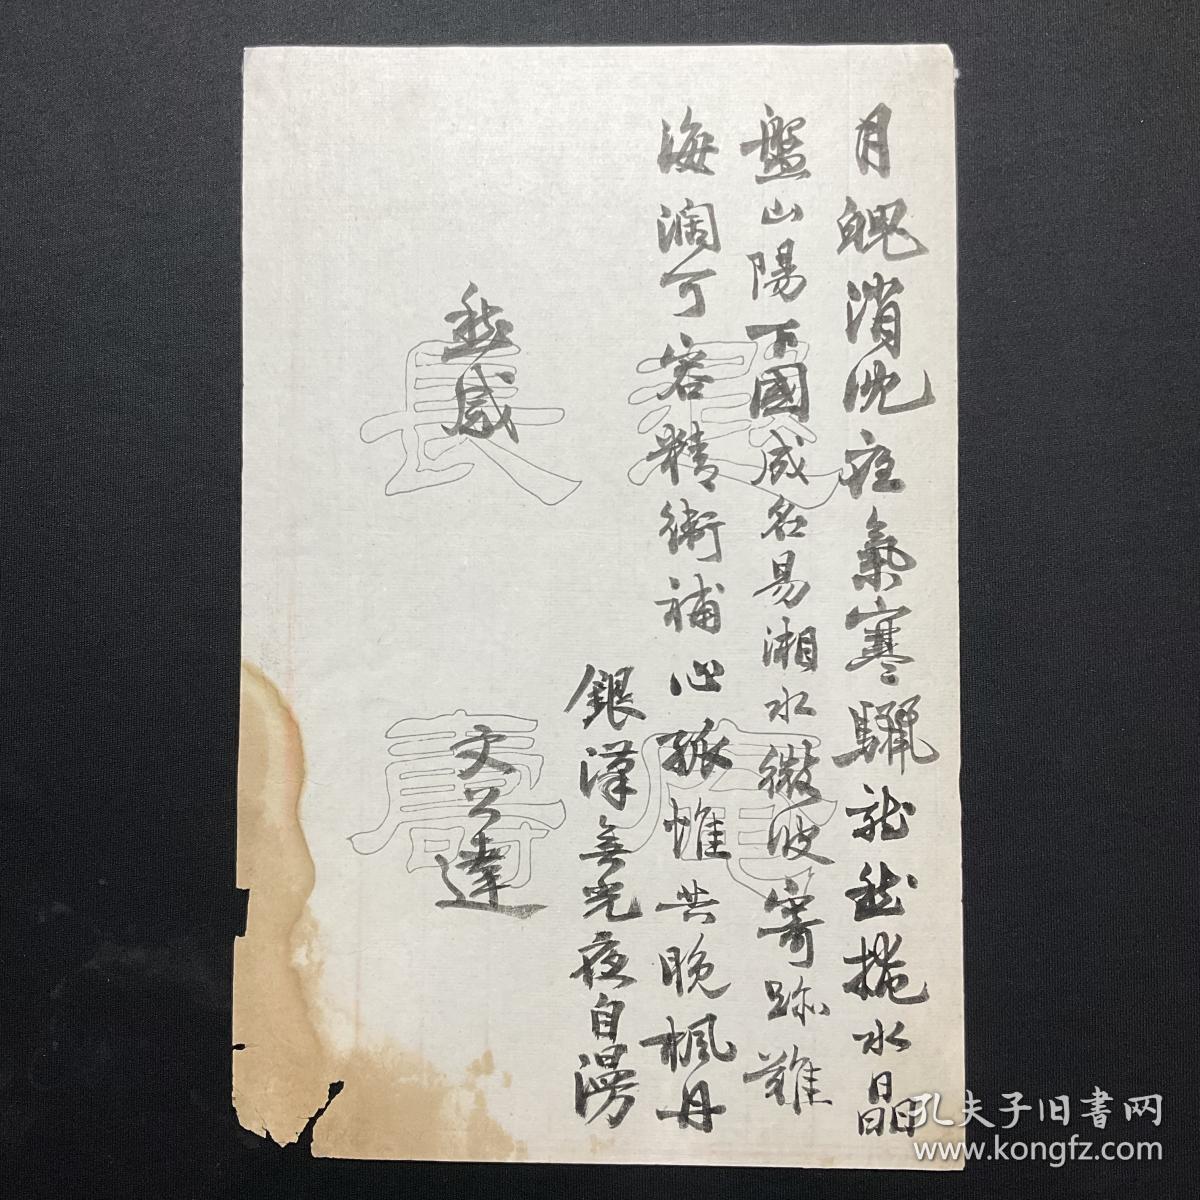 月魄消沈夜氣寒驪龍愁掩水晶
盤山陽下國成名易湘水微波寄跡難
海濶可容精衛補心孤惟共晚楓丹
銀漢無光夜自漫
感
文公達
長
壽
孔夫子旧書网
www.kongfz.com